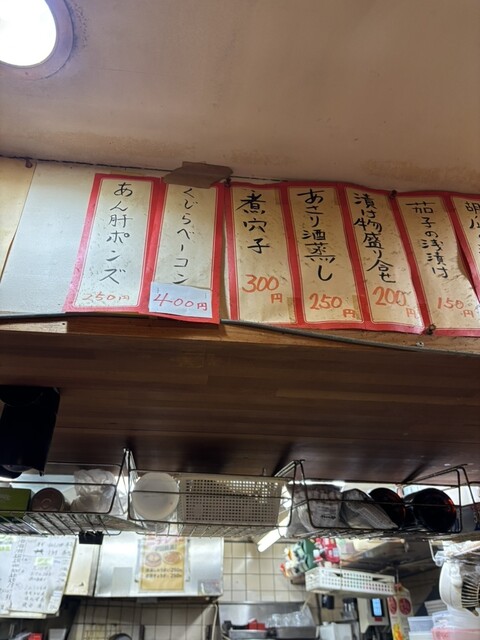 あん肝ポンズ
250円
くじらベーコン
400円
煮穴子
300円
あさり酒蒸し
250円
漬け物盛り合せ
200円
茄子の浅漬け
150円